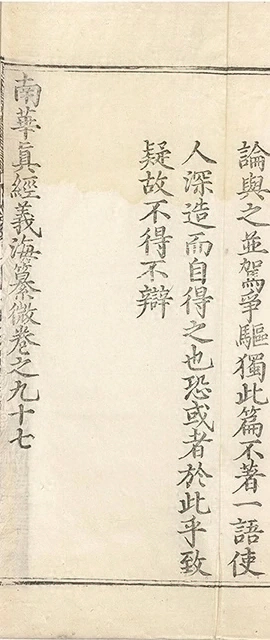 論與之並駕爭驅獨此篇不著一語使
人深造而自得之也恐或者於此乎致
疑故不得不辯
南華眞經義海纂微卷之九十七